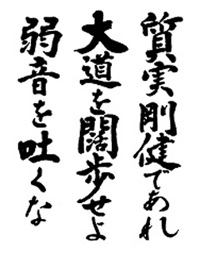 質実剛健であれ
大道を闊歩せよ
弱音を吐くな